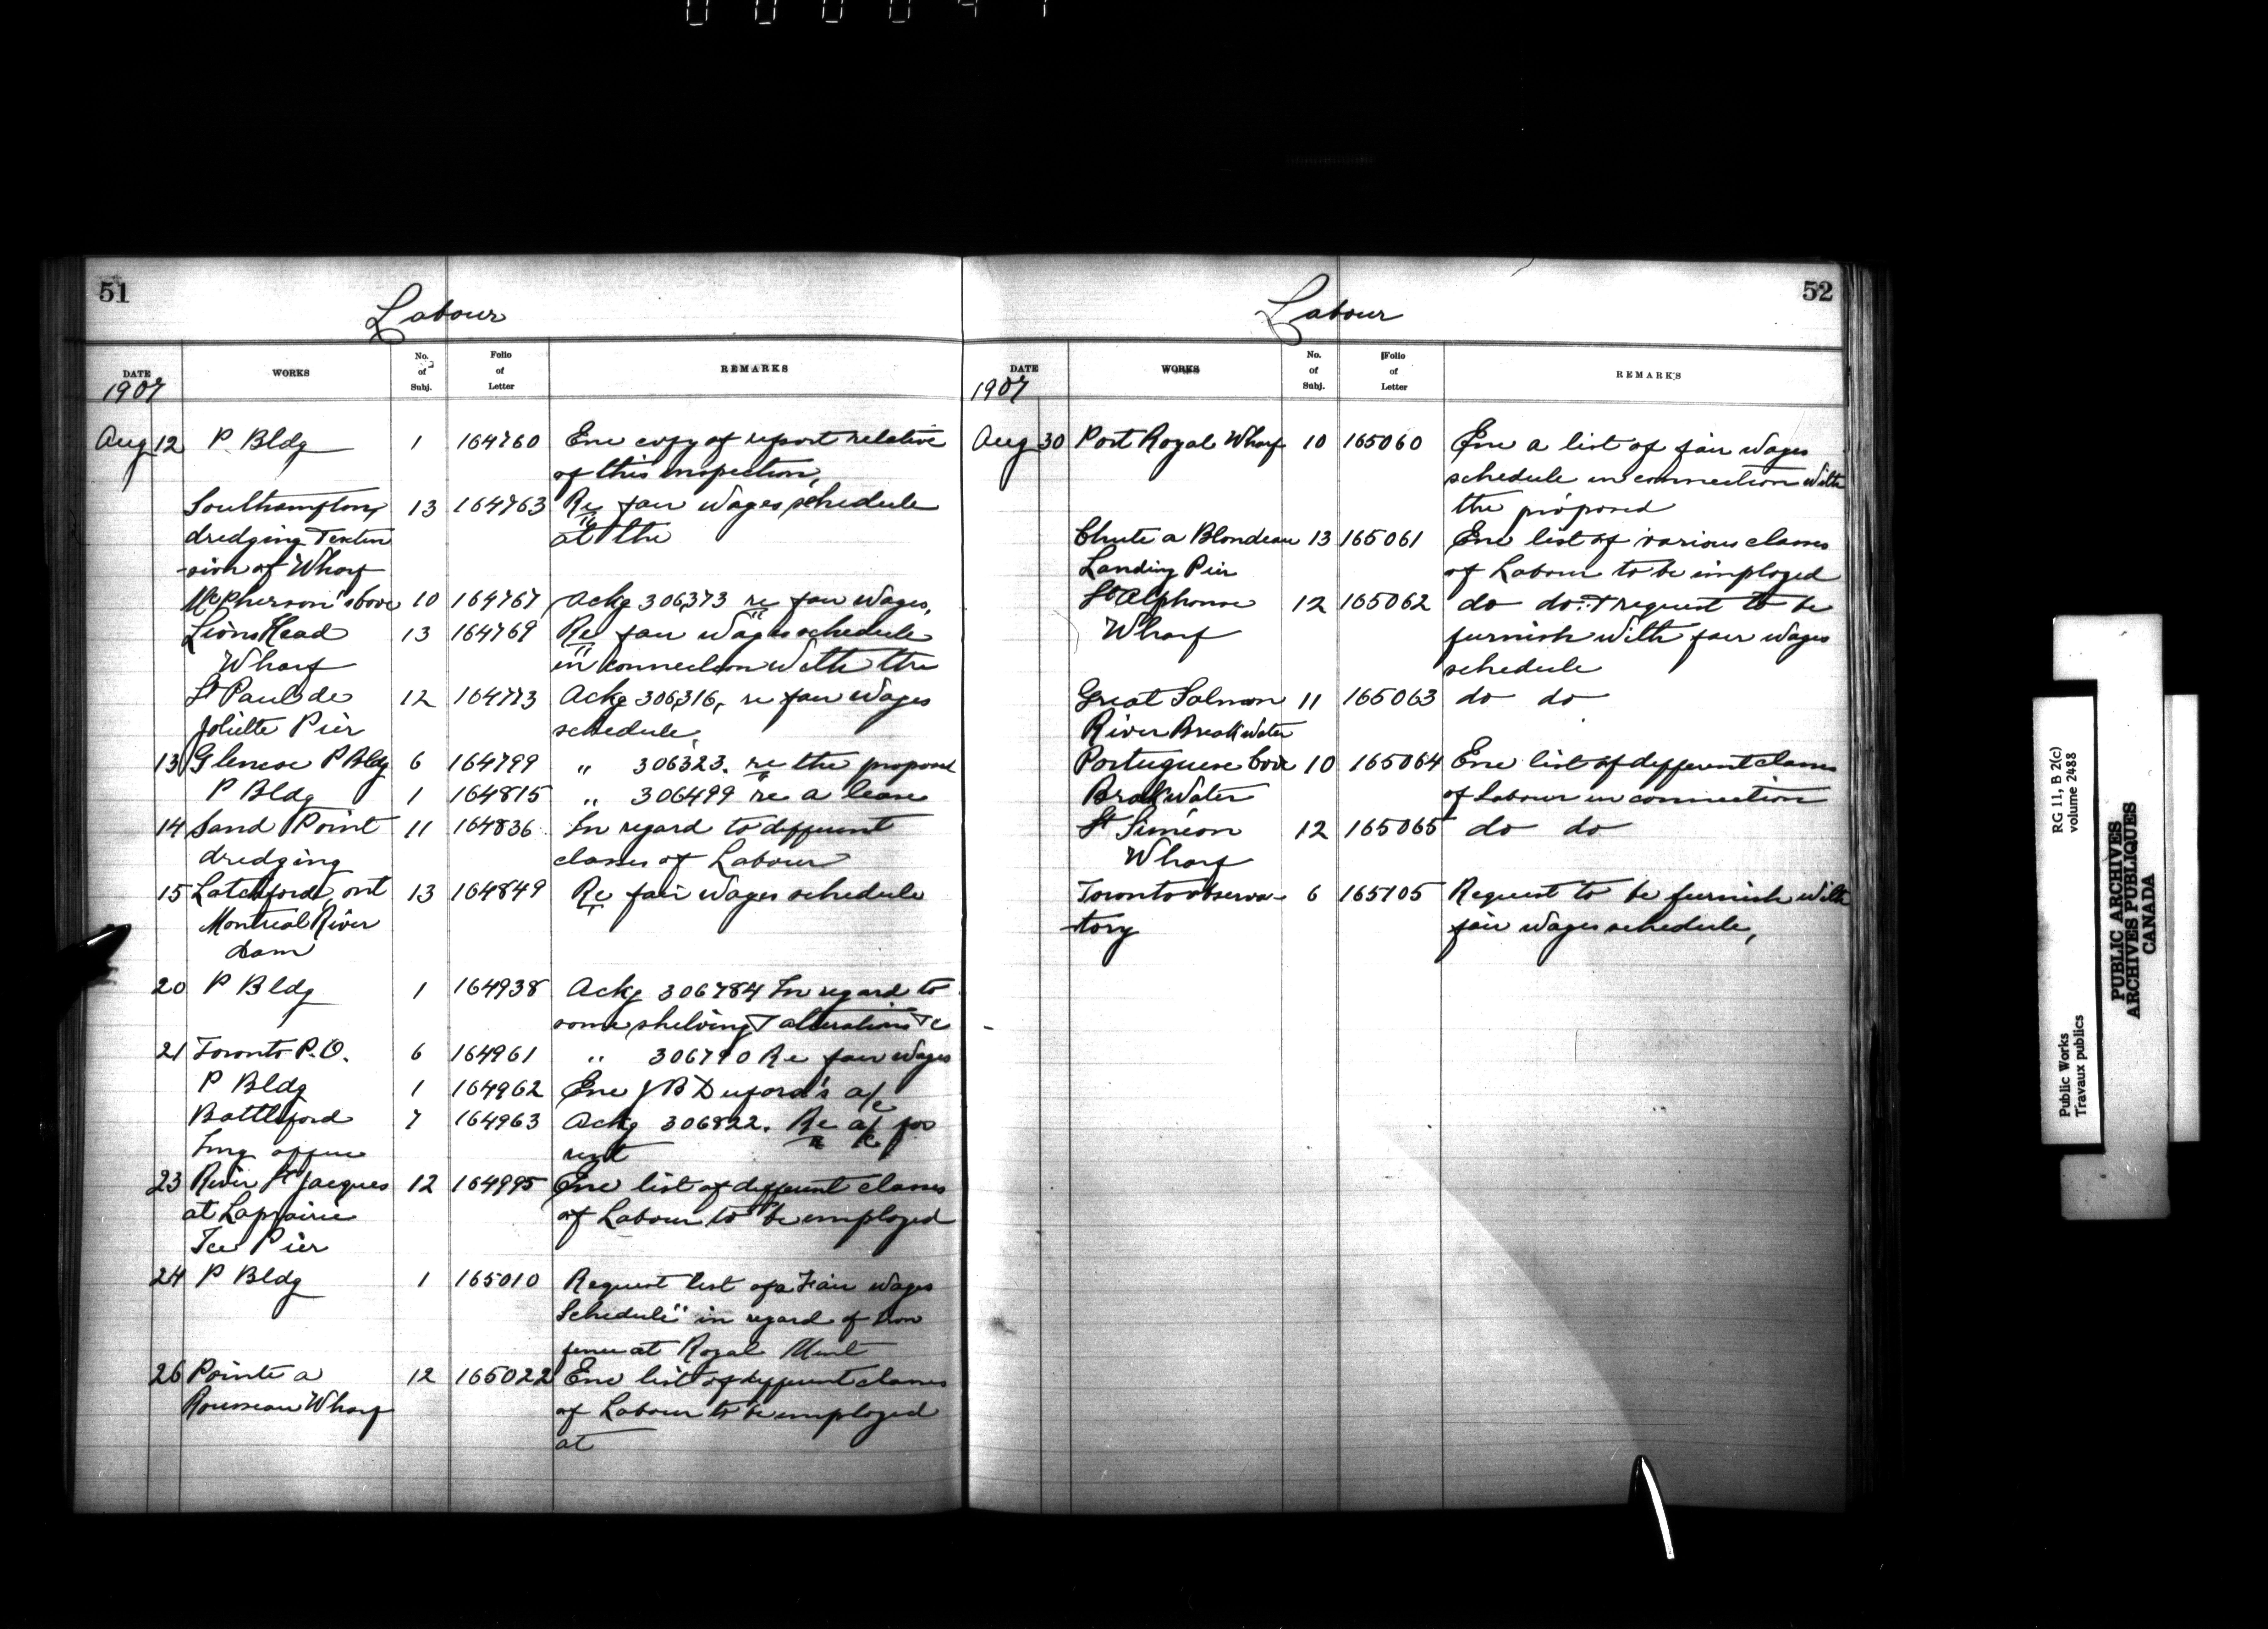 51
Labour
DATE WORKS No. of Subj. Folio of Letter REMARKS
1907
Aug 12 P Bldg 1 164760 Enc copy of report relative
of this inspection,
Southampton, 13 164763 Re fair wages schedule
dredging & exten at the
-sion of Wharf
McPherson's Cove 10 164767 Ackg 306373 re fair wages,
Lions Head 13 164769 Re fair wages schedule
Wharf in connection with the
St Paul de 12 164773 Ackg 306316, re fair wages
Joliette Pier schedule,
13 Glencoe P Bldg 6 164799 " 306323. re the proposed
P Bldg 1 164815 " 306499 re a lease
14 Sand Point 11 164836 In regard to different
dredging classes of Labour
15 Latchford, ont 13 164849 Re fair wages schedule
Montreal River
dam
20 P Bldg 1 164938 Ackg 306784 In regard to
some shelving & alterations &c
21 Toronto P.O. 6 164961 " 306790 Re fair wages
P Bldg 1 164962 Enc J B Duford's a/c
Battleford 7 164963 Ackg 306822. Re a/c for
Img office rent
23 River St Jacques 12 164995 Enc list of different classes
at Laprairie of Labour to be employed
Ice Pier
24 P Bldg 1 165010 Request list of a Fair wages
Schedule" in regard of iron
fence at Royal Mint
26 Pointe a 12 165022 Enc list of different classes
Rousseau Wharf of Labour to be employed
at
52
Labour
DATE WORKS No. of Subj. Folio of Letter REMARKS
1907
Aug 30 Port Royal Wharf 10 165060 Enc a list of fair wages
schedule in connection with
the proposed
Chute a Blondeau 13 165061 Enc list of various classes
Landing Pier of Labour to be employed
St Alphonse 12 165062 do do & request to be
Wharf furnish with fair wages
schedule
Great Salmon 11 165063 do do
River BreakWater
Portuguese Cove 10 165064 Enc list of different classes
BrakWater of Labour in connection
St Siméon 12 165065 do do
Wharf
Toronto observa- 6 165105 Request to be furnish with
-tory fair wages schedule,
RG 11, B 2(c)
volume 2488
Public Works
Travaux publics
PUBLIC ARCHIVES
ARCHIVES PUBLIQUES
CANADA